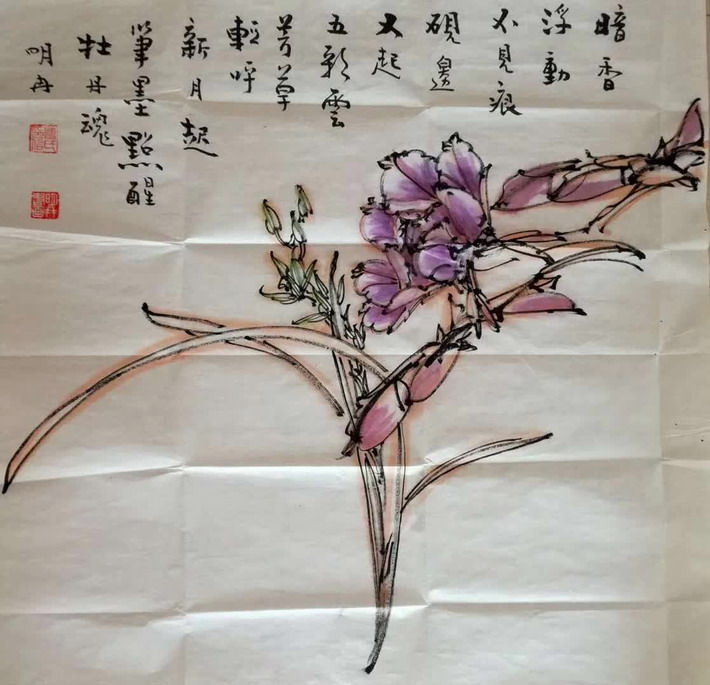 暗香
浮動
不見痕
硯邊
又起
五彩雲
芳草
輕呼
新月起
筆墨點醒
牡丹魂
明冉